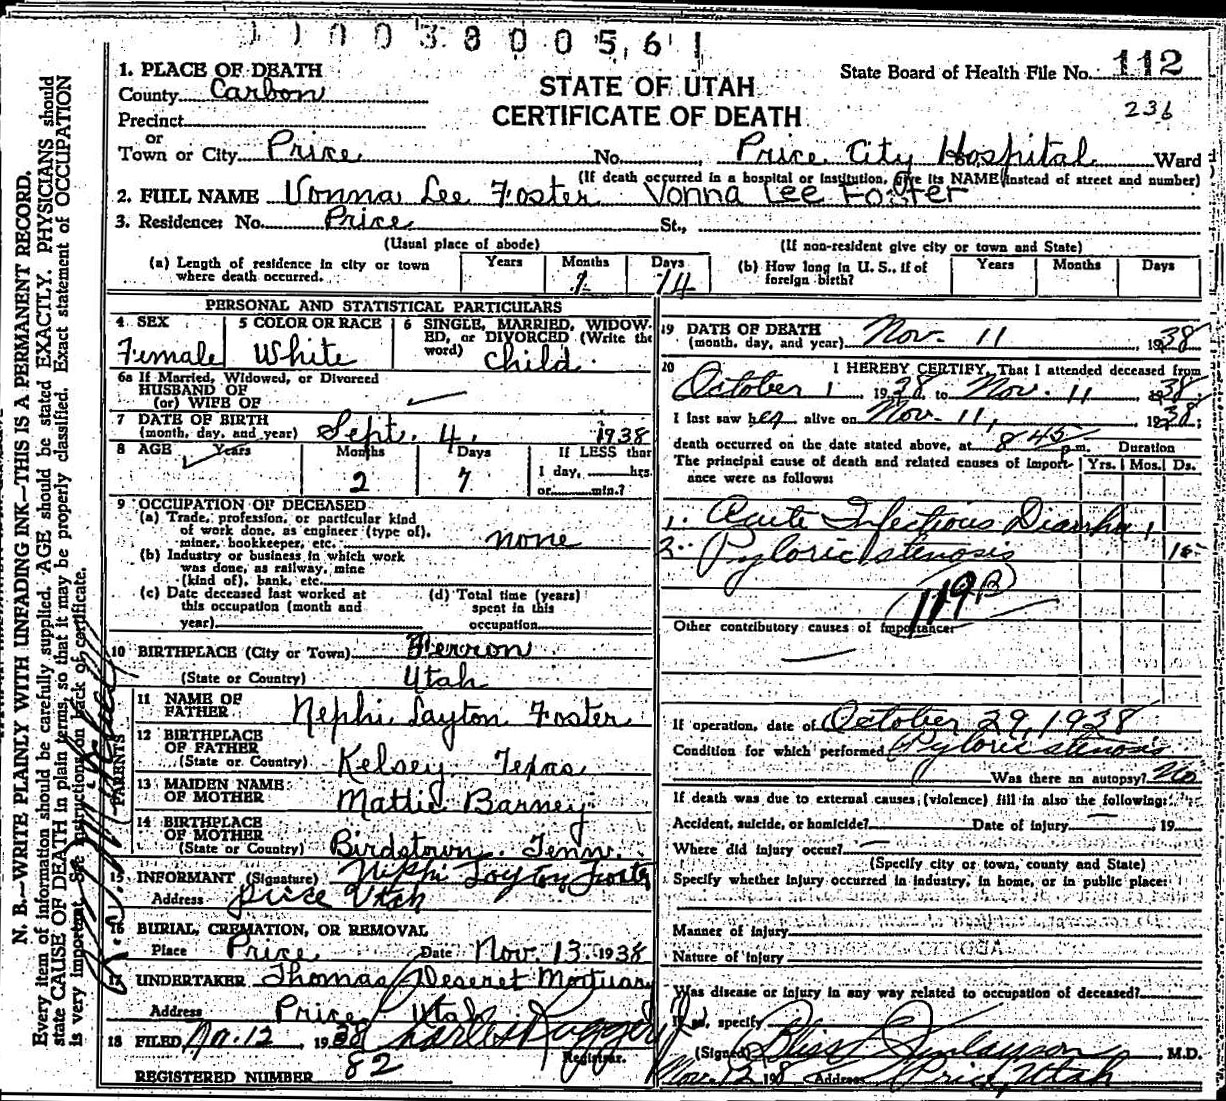 1 1 0 0 3 8 0 0 5 6 1
1. PLACE OF DEATH
County Carbon
Precinct
or
Town or City Price No. Price City Hospital Ward
STATE OF UTAH
CERTIFICATE OF DEATH
State Board of Health File No. 112
236
(If death occurred in a hospital or institution, give its NAME instead of street and number)
2. FULL NAME Vonna Lee Foster Vonna Lee Foster
3. Residence: No. Price St.,
(Usual place of abode) (If non-resident give city or town and State)
(a) Length of residence in city or town where death occurred. Years Months 1 Days 14
(b) How long in U. S., if of foreign birth? Years Months Days
PERSONAL AND STATISTICAL PARTICULARS
4 SEX Female
5 COLOR OR RACE White
6 SINGLE, MARRIED, WIDOWED, or DIVORCED (Write the word) child
6a If Married, Widowed, or Divorced
HUSBAND OF
(or) WIFE OF
7 DATE OF BIRTH
(month, day, and year) Sept. 4, 1938
8 AGE Years Months Days If LESS than
2 7 1 day, hrs.
or min.?
9 OCCUPATION OF DECEASED
(a) Trade, profession, or particular kind
of work done, as engineer (type of),
miner, bookkeeper, etc. none
(b) Industry or business in which work
was done, as railway, mine
(kind of), bank, etc.
(c) Date deceased last worked at
this occupation (month and
year)
(d) Total time (years)
spent in this
occupation
10 BIRTHPLACE (City or Town) Ferron
(State or Country) Utah
PARENTS
11 NAME OF
FATHER Nephi Layton Foster
12 BIRTHPLACE
OF FATHER
(State or Country) Kelsey Texas
13 MAIDEN NAME
OF MOTHER Mattie Barney
14 BIRTHPLACE
OF MOTHER
(State or Country) Birdstown. Tenn.
15 INFORMANT (Signature) Nephi Layton Foster
Address Price Utah
16 BURIAL, CREMATION, OR REMOVAL
Place Price Date Nov. 13. 1938
17 UNDERTAKER Thomas Deseret Mortuary
Address Price Utah
18 FILED No. 12 1938 Charles Ruggeri Jr
Registrar.
REGISTERED NUMBER 82
19 DATE OF DEATH
(month, day, and year) Nov. 11, 1938
20 I HEREBY CERTIFY, That I attended deceased from
October 1 1938, to Nov. 11 1938.
I last saw her alive on Nov. 11, 1938;
death occurred on the date stated above, at 8 45 p m. Duration
The principal cause of death and related causes of importance were as follows: Yrs. Mos. Ds.
1. Acute Infectious Diarrhea 1
2. Pyloric stenosis 15
119B
Other contributory causes of importance:
If operation, date of October 29, 1938
Condition for which performed Pyloric stenosis
Was there an autopsy? No
If death was due to external causes (violence) fill in also the following:
Accident, suicide, or homicide? Date of injury 19
Where did injury occur?
(Specify city or town, county and State)
Specify whether injury occurred in industry, in home, or in public place:
Manner of injury
Nature of injury
Was disease or injury in any way related to occupation of deceased?
If so, specify
(Signed) Bliss Finlayson M.D.
Nov. 12 1938 Address Price, Utah
N. B.—WRITE PLAINLY WITH UNFADING INK—THIS IS A PERMANENT RECORD.
Every item of information should be carefully supplied. AGE should be stated EXACTLY. PHYSICIANS should
state CAUSE OF DEATH in plain terms, so that it may be properly classified. Exact statement of OCCUPATION
is very important. See instructions on back of certificate.